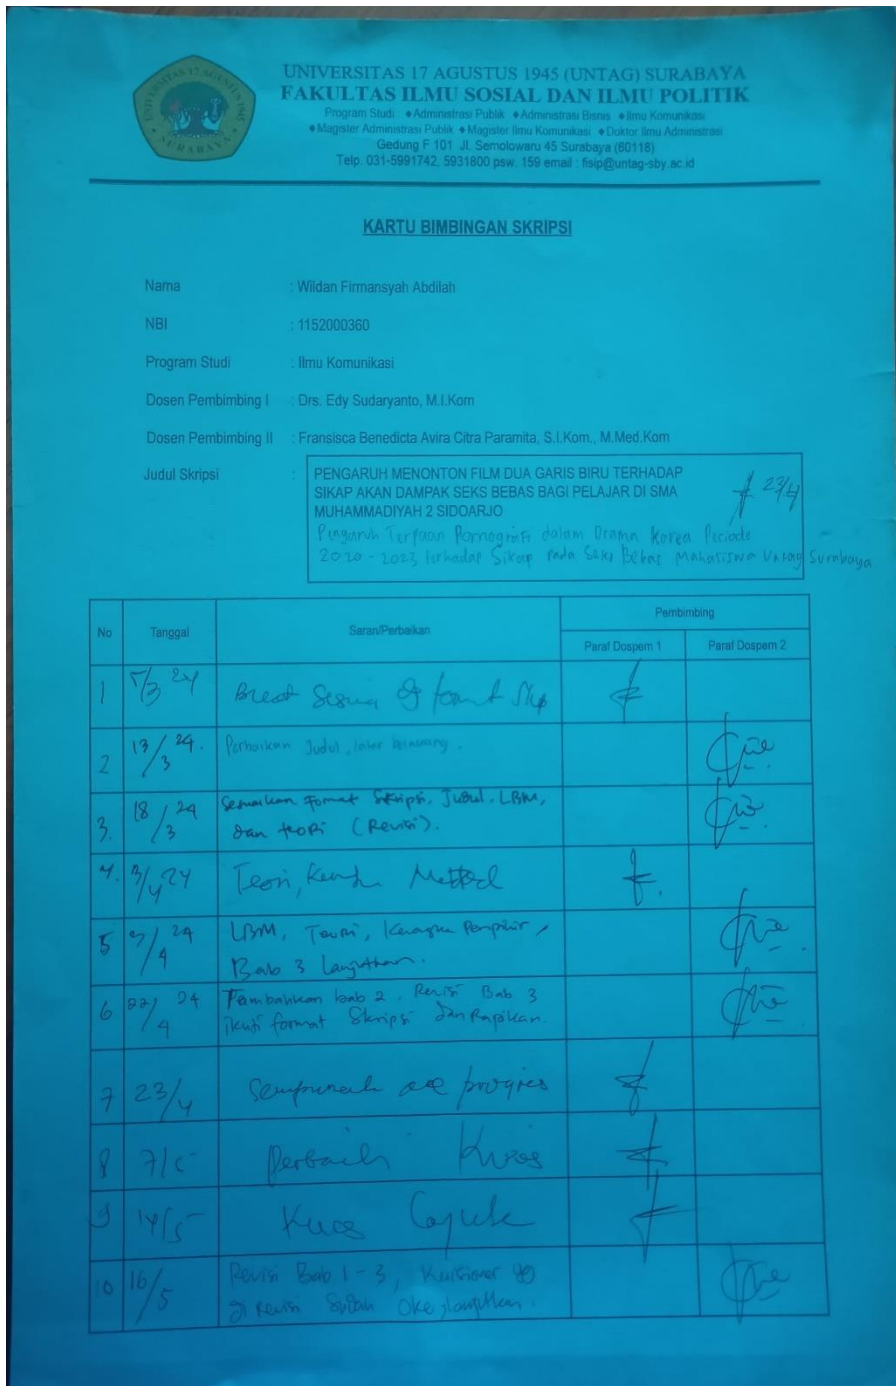 UNIVERSITAS 17 AGUSTUS 1945
SURABAYA
UNIVERSITAS 17 AGUSTUS 1945 (UNTAG) SURABAYA
FAKULTAS ILMU SOSIAL DAN ILMU POLITIK
Program Studi : ♦Administrasi Publik ♦Administrasi Bisnis ♦Ilmu Komunikasi
♦Magister Administrasi Publik ♦Magister Ilmu Komunikasi ♦Doktor Ilmu Administrasi
Gedung F 101 Jl. Semolowaru 45 Surabaya (60118)
Telp. 031-5991742, 5931800 psw. 159 email : fisip@untag-sby.ac.id
KARTU BIMBINGAN SKRIPSI
Nama : Wildan Firmansyah Abdilah
NBI : 1152000360
Program Studi : Ilmu Komunikasi
Dosen Pembimbing I : Drs. Edy Sudaryanto, M.I.Kom
Dosen Pembimbing II : Fransisca Benedicta Avira Citra Paramita, S.I.Kom., M.Med.Kom
Judul Skripsi : PENGARUH MENONTON FILM DUA GARIS BIRU TERHADAP
SIKAP AKAN DAMPAK SEKS BEBAS BAGI PELAJAR DI SMA
MUHAMMADIYAH 2 SIDOARJO
23/4
Pengaruh Terpaan Pornografi dalam Drama Korea Periode
2020 - 2023 terhadap Sikap pada Seks Bebas Mahasiswa Untag Surabaya
No Tanggal Saran/Perbaikan Pembimbing
Paraf Dospem 1 Paraf Dospem 2
1 /3 24 format
2 13/3 24. Perbaikan Judul, latar belakang.
3. 18/3 24 Sesuaikan format Skripsi, Judul, LBM,
dan teori (Revisi).
4. 3/4 24 Teori,
5 /4 24 LBM, Teori, Kerangka
Bab 3 Lanjutkan.
6 22/4 24 Tambahkan bab 2. Revisi Bab 3
ikuti format Skripsi dan Rapikan.
7 23/4 progres
8 7/5
9 14/5
10 16/5 Revisi Bab 1-3, Kuisioner yg
di revisi sudah Oke, lanjutkan.